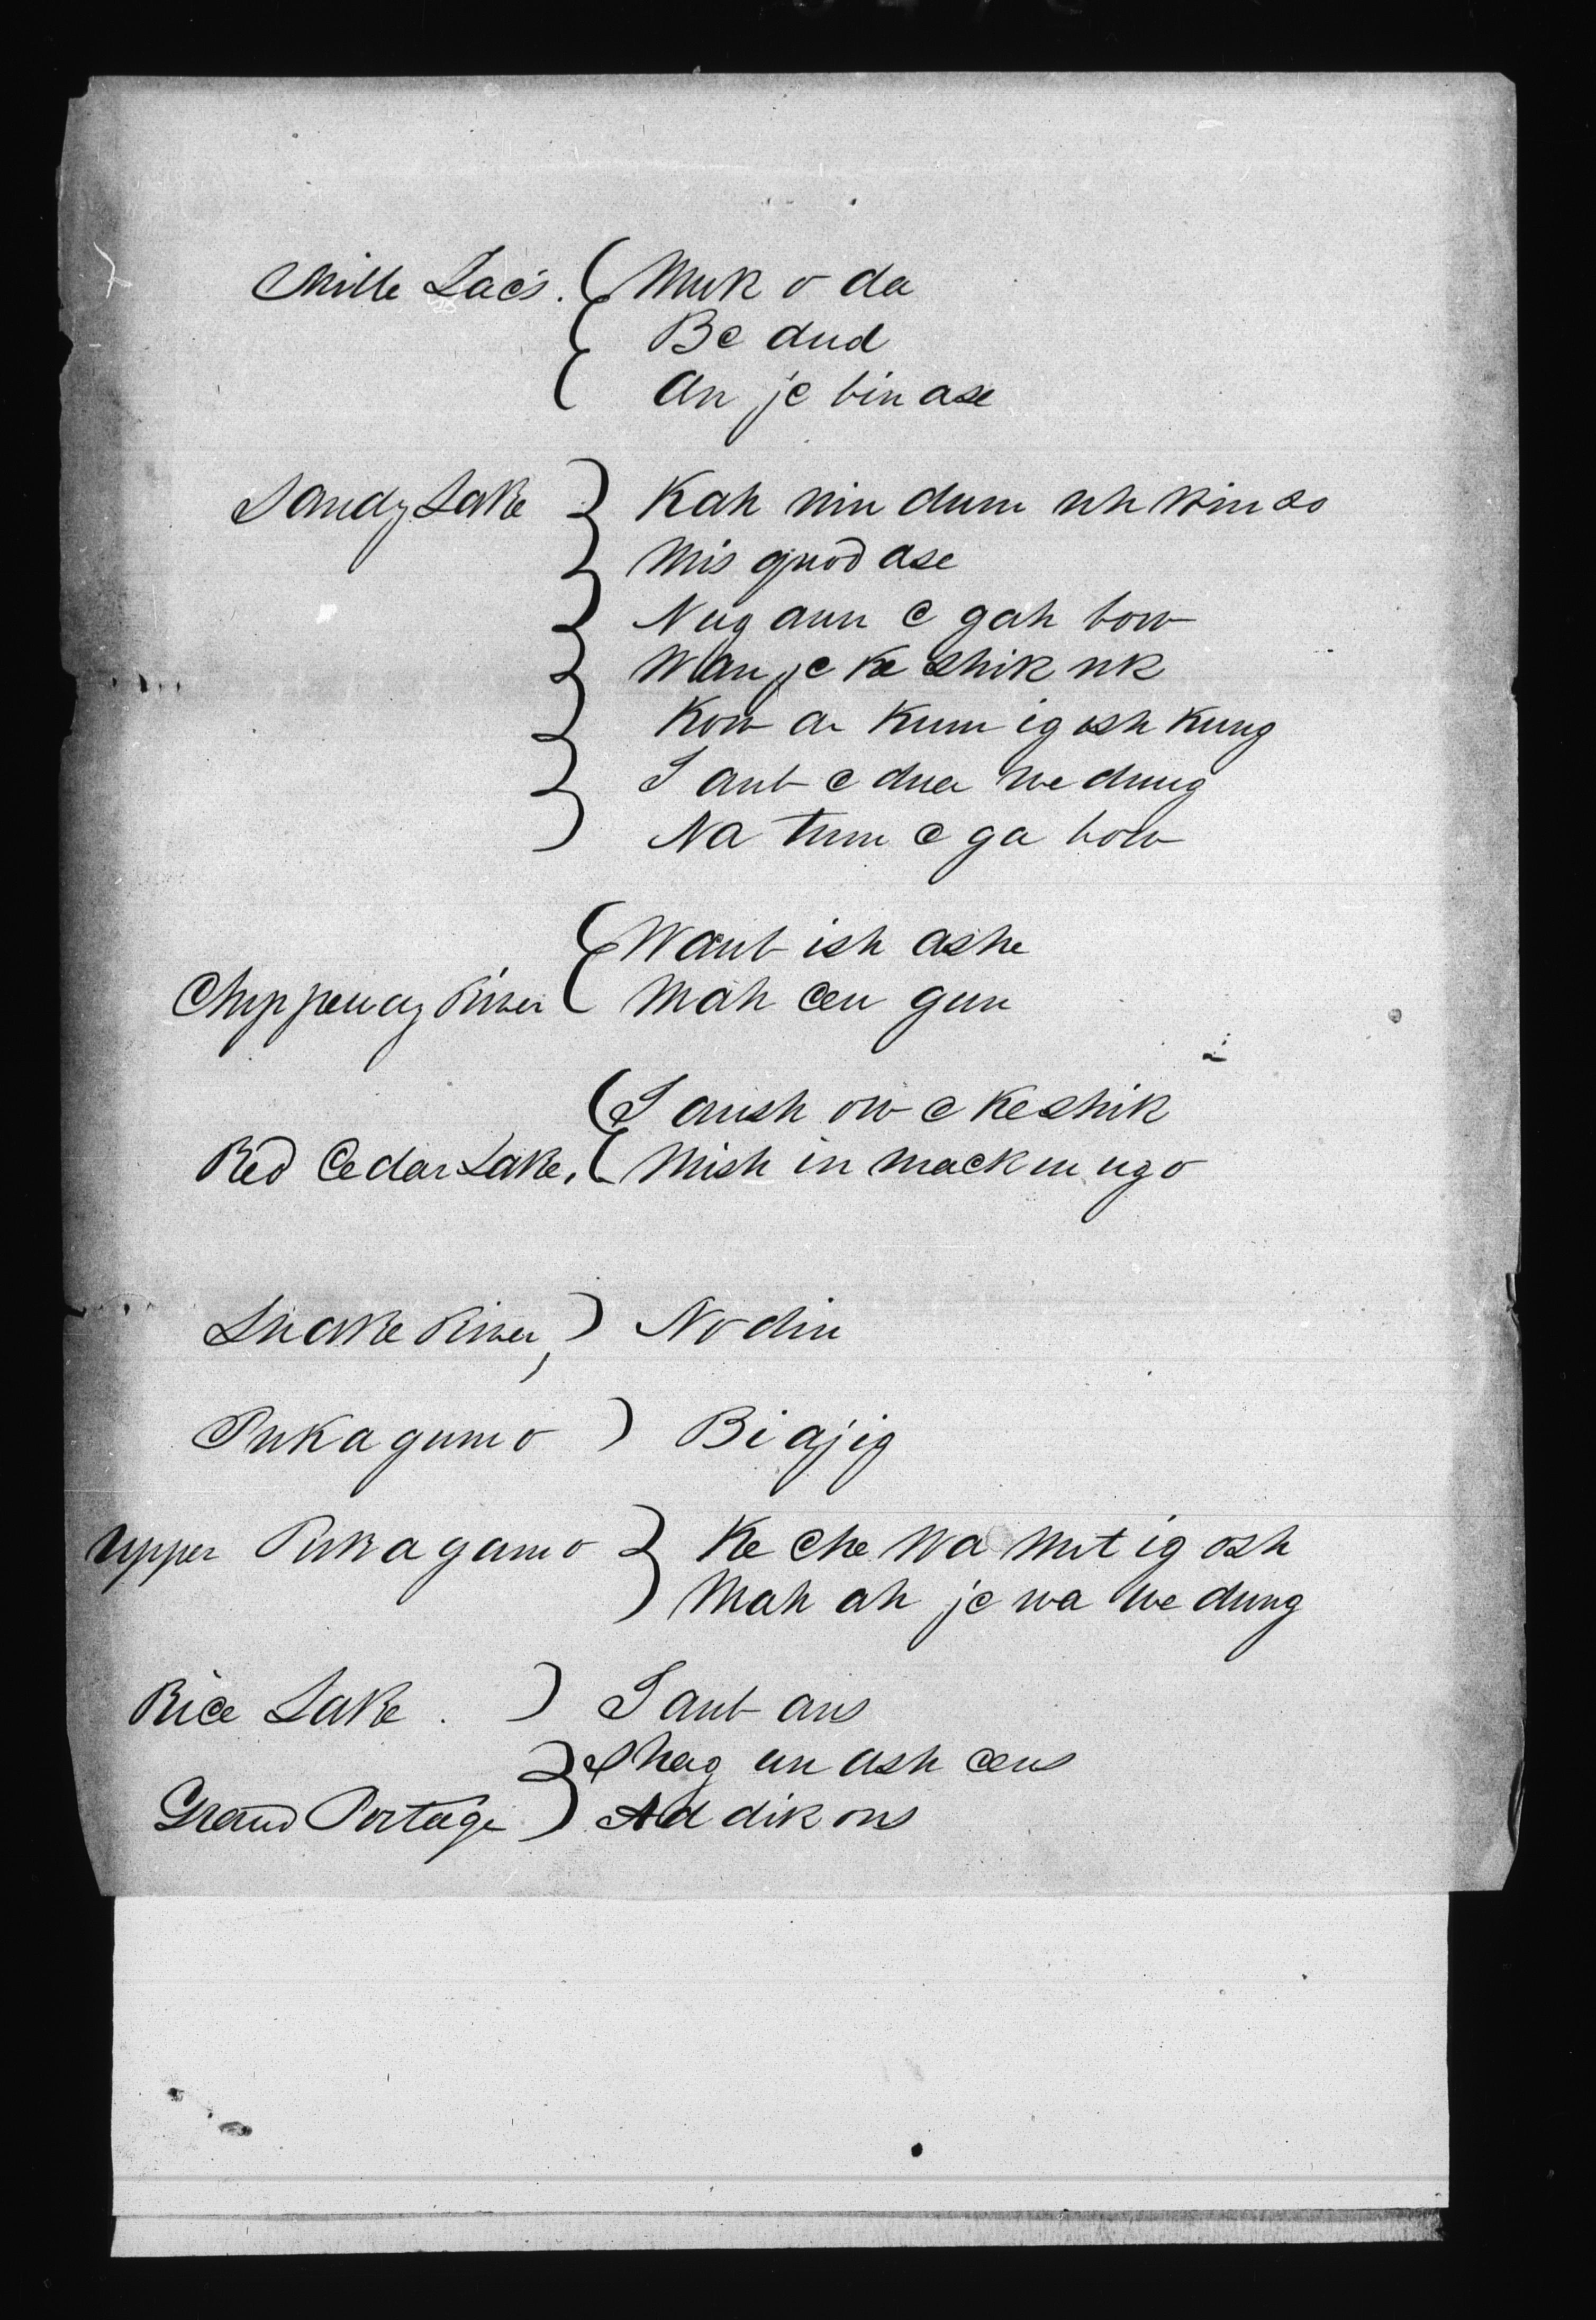 Mille Lac's. Muk o da
Be dud
An je bin ase
Sandy Lake Kah nin dum uh win so
Mis quod ase
Nug aun e gah bow
Wan je ke shik uk
Kow a Kum ig ish kung
I aub e dua we dung
Na tum e ga bow
Waub ish ashe
Chippeway River Mah een gun
I aush ow e Ke shik
Red Cedar Lake, Mish in mack in ugo
Snake River, No din
Pukagumo Bi ajig
Upper Pukagamo Ke che wa mit ig osh
Mah ah je wa we dung
Rice Lake. I aub aus
Shag un ash eens
Grand Portage Ad dik ons